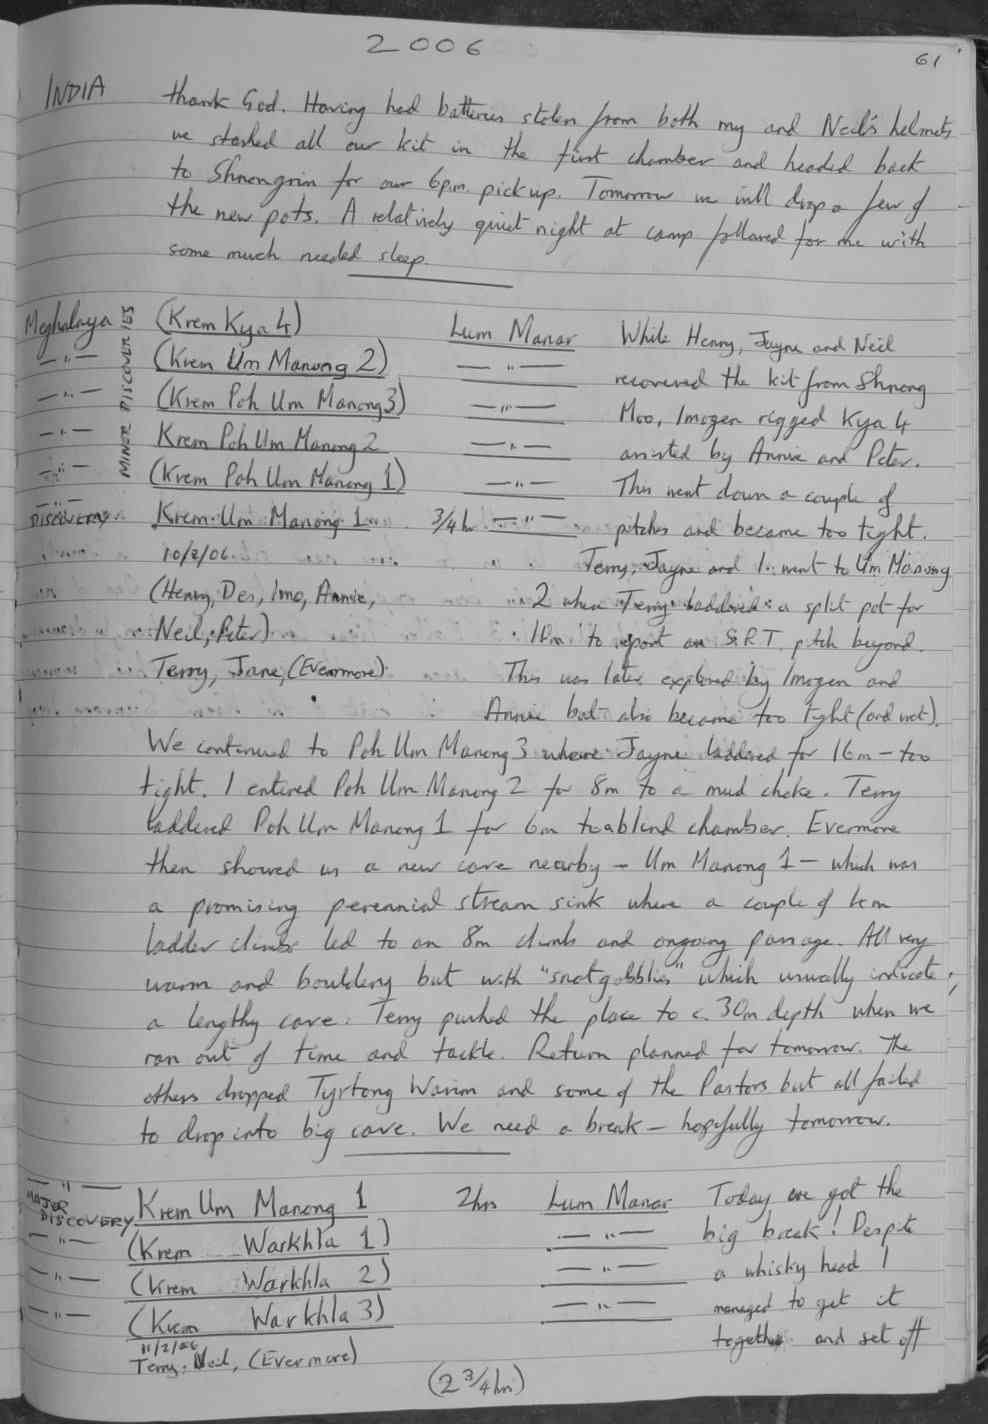 2006
61
INDIA
thank God. Having had batteries stolen from both my and Neil's helmets
we stashed all our kit in the first chamber and headed back
to Shnongrim for our 6pm pick up. Tomorrow we will drop a few of
the new pots. A relatively quiet night at camp followed for me with
some much needed sleep.
Meghalaya MINOR DISCOVERIES (Krem Kya 4) Lum Manar While Henry, Jayne and Neil
—"— (Krem Um Manong 2) —"— recovered the kit from Shnong
—"— (Krem Poh Um Manong 3) —"— Moo, Imogen rigged Kya 4
—"— Krem Poh Um Manong 2 —"— assisted by Annie and Peter.
—"— (Krem Poh Um Manong 1) —"— This went down a couple of
—"— DISCOVERY Krem Um Manong 1 3/4 hr —"— pitches and became too tight.
10/2/06. Terry, Jayne and I went to Um Manong
(Henry, Des, Imo, Annie, 2 where Terry laddered a split pot for
Neil, Peter) to report an SRT pitch beyond.
Terry, Jane, (Evermore) This was later explored by Imogen and
Annie but also became too tight (and wet).
We continued to Poh Um Manong 3 where Jayne laddered for 16m – too
tight. I entered Poh Um Manong 2 for 8m to a mud choke. Terry
laddered Poh Um Manong 1 for 6m to a blind chamber. Evermore
then showed us a new cave nearby – Um Manong 1 – which was
a promising perennial stream sink where a couple of 4m
ladder climbs led to an 8m climb and ongoing passage. All very
warm and bouldery but with "snotgobblies" which usually indicate
a lengthy cave. Terry pushed the place to c. 30m depth when we
ran out of time and tackle. Return planned for tomorrow. The
others dropped Tyrtong Warim and some of the Pastors but all failed
to drop into big cave. We need a break – hopefully tomorrow.
—"— MAJOR DISCOVERY Krem Um Manong 1 2hrs Lum Manar Today we got the
—"— (Krem Warkhla 1) —"— big break! Despite
—"— (Krem Warkhla 2) —"— a whisky head I
—"— (Krem Warkhla 3) —"— managed to get it
11/2/06 together and set off
Terry, Neil, (Evermore)
(2 3/4 hrs)